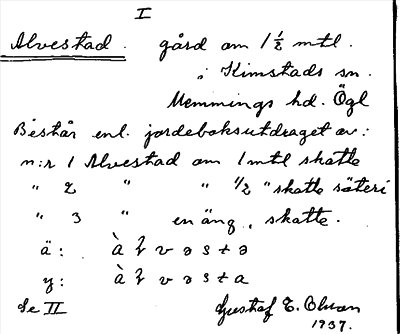 I
Alvestad. gård om 1 1/2 mtl.
i Kimstads sn.
Memmings hd. Ögl
Består enl. jordeboksutdraget av:
n:r 1 Alvestad om 1 mtl skatte
" 2 " " 1/2 " skatte säteri
" 3 " en äng, skatte.
ä:
y:
Se II Gustaf E.
1937.